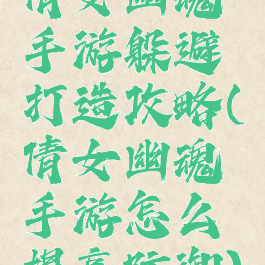 倩女幽魂
手游躲避
打造攻略(
倩女幽魂
手游怎么
提高防御)